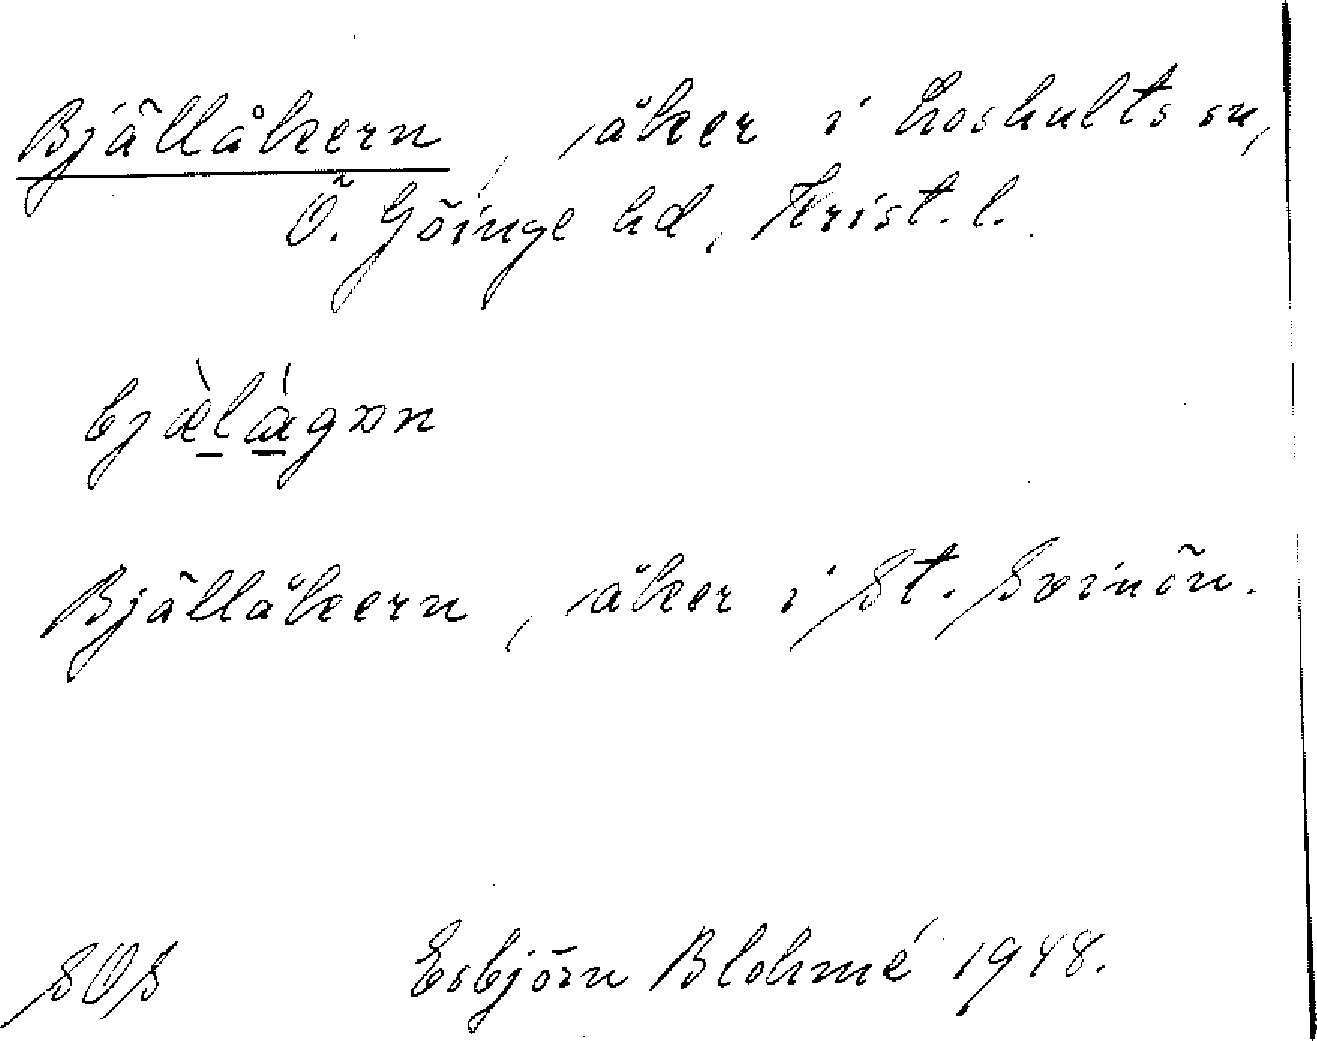 Bjällåkern, åker i Loshults sn,
Ö. Göinge hd, Krist. l.
bjæ̀lágən
Bjällåkern, åker i St. Svinön.
SOS Esbjörn Blohmé 1948.